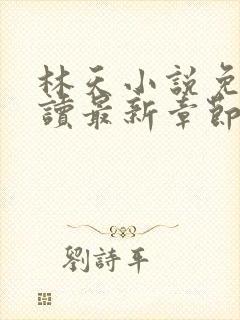 林天小說免
讀最新章節
劉詩平